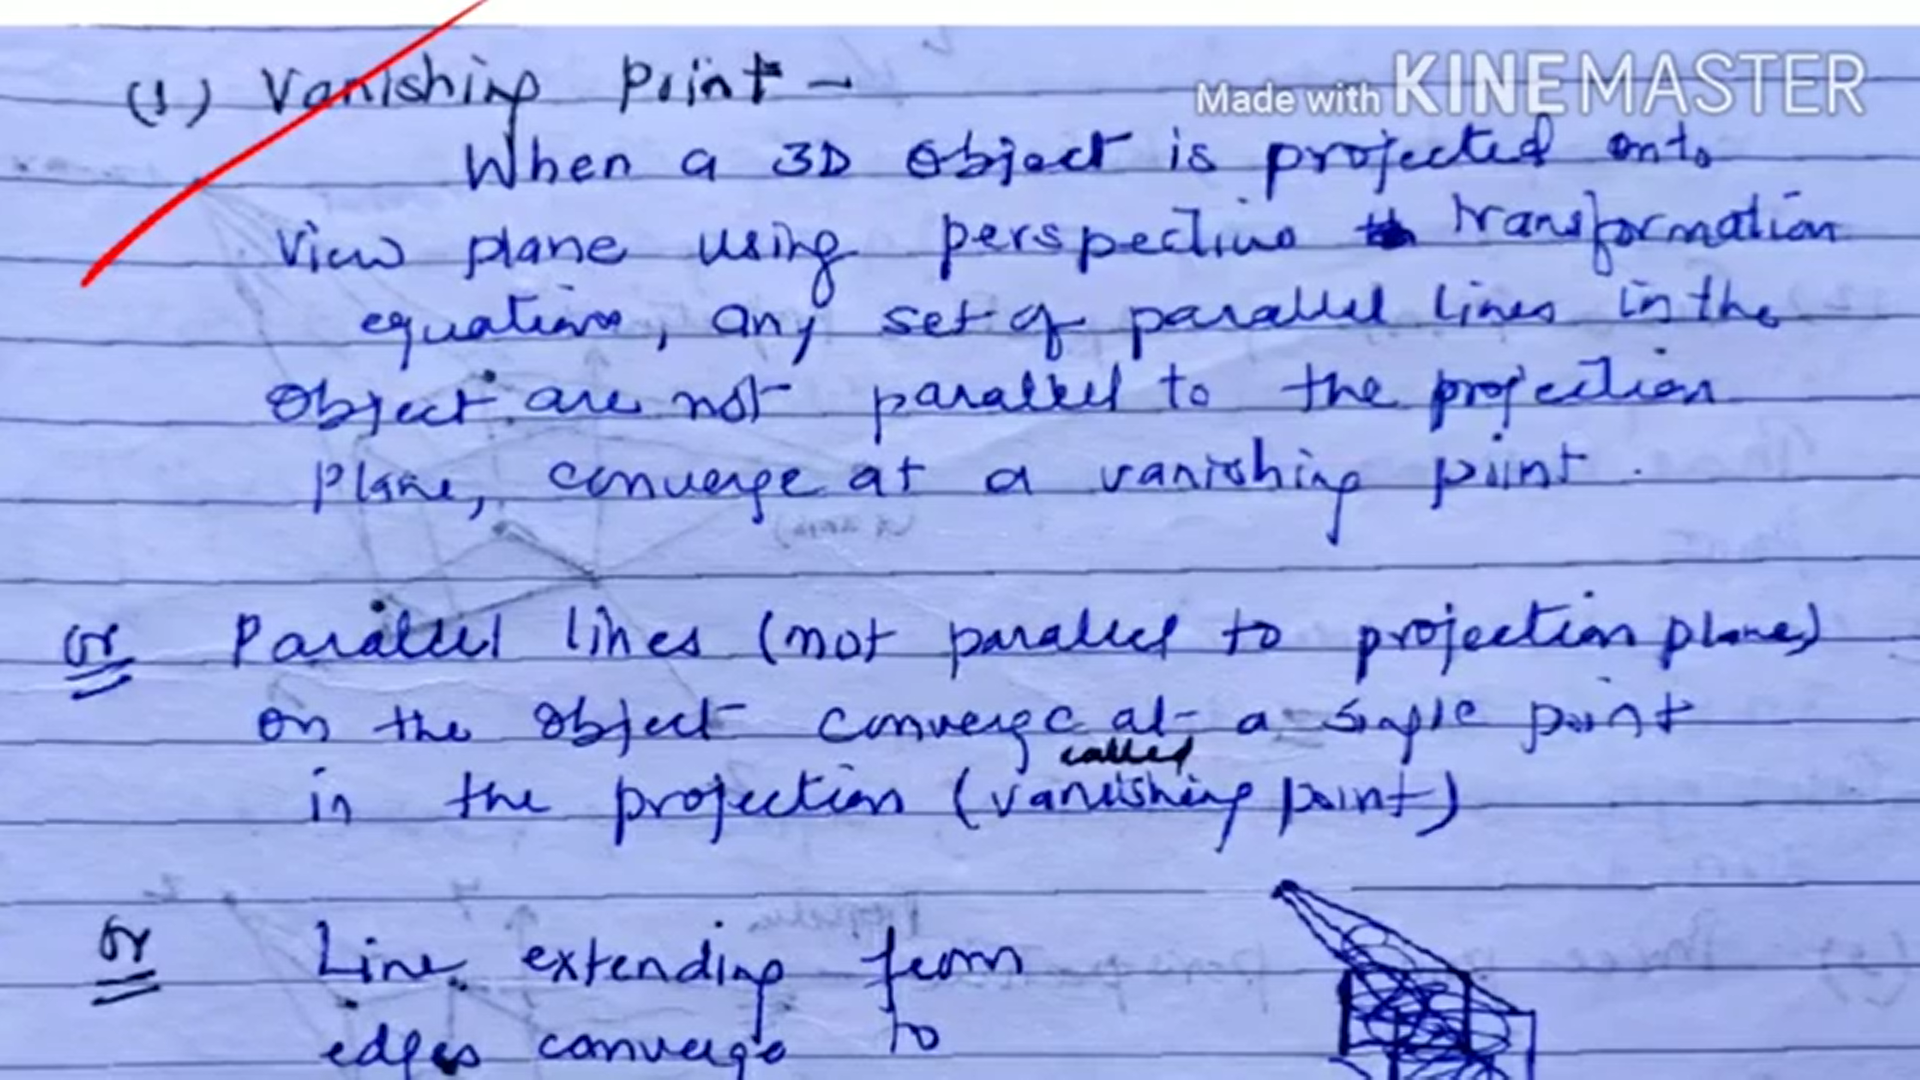 Made with KINEMASTER
(1) Vanishing Point -
When a 3D object is projected onto
view plane using perspective transformation
equations, any set of parallel lines in the
object are not parallel to the projection
plane, converge at a vanishing point.
or Parallel lines (not parallel to projection plane)
on the object converge at a single point
called
in the projection (vanishing point)
or Line extending from
edges converge to